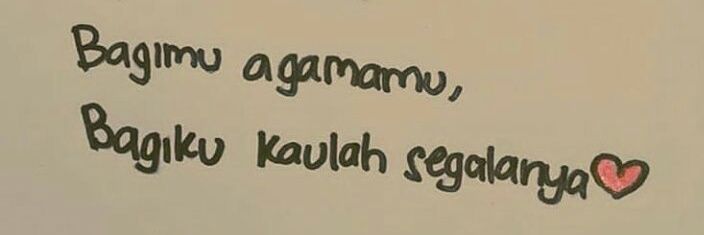 Bagimu agamamu,
Bagiku kaulah segalanya